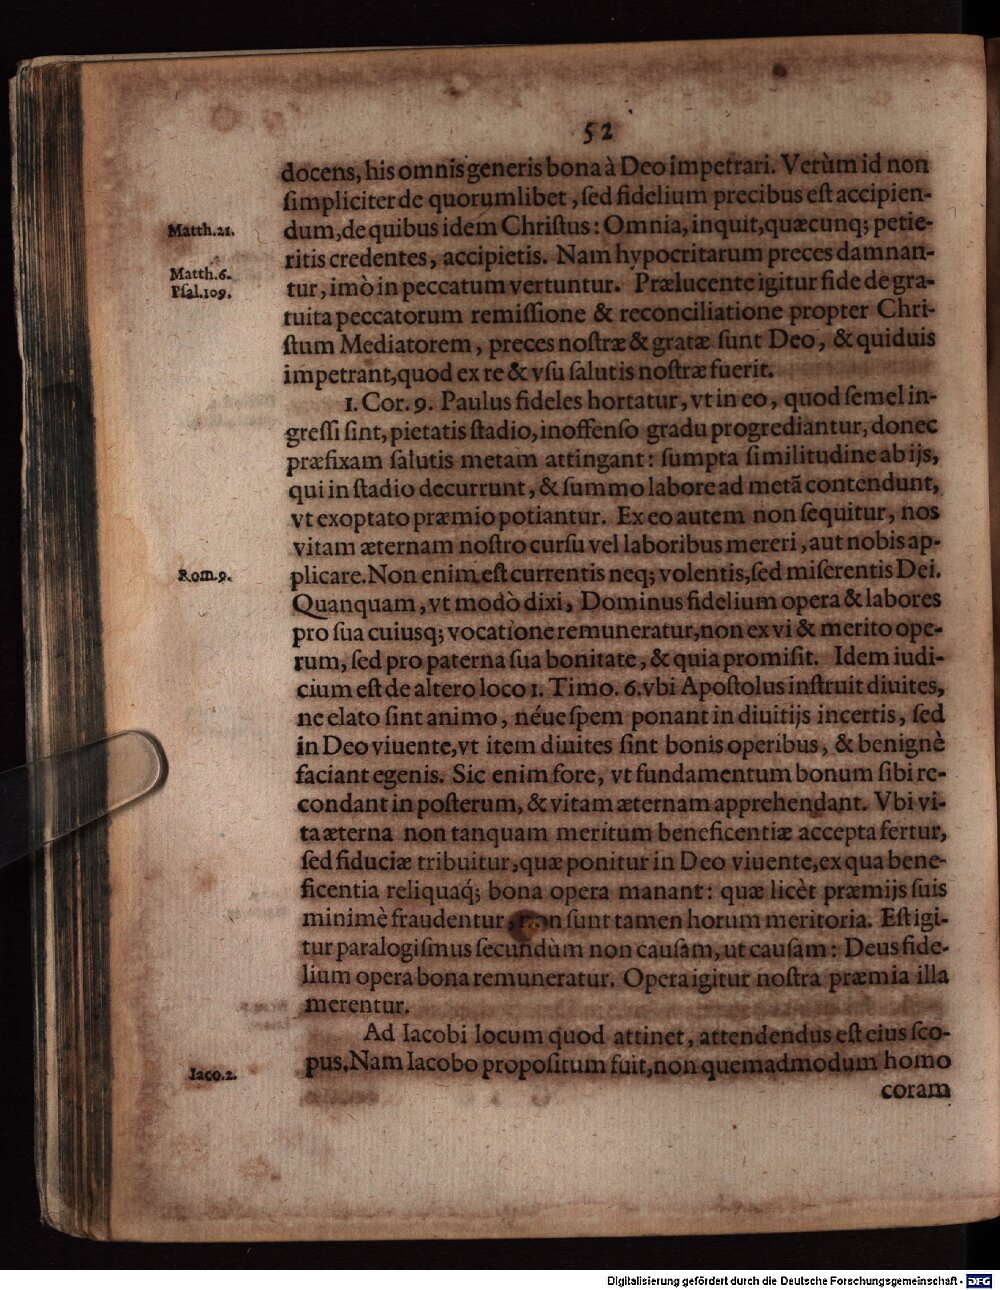 52
docens, his omnis generis bona à Deo impetrari. Verùm id non
ſimpliciter de quorumlibet, ſed fidelium precibus eſt accipien-
Matth.21. dum, de quibus idem Chriſtus: Omnia, inquit, quæcunq; petie-
ritis credentes, accipietis. Nam hypocritarum preces damnan-
Matth.6.
Pſal.109. tur, imò in peccatum vertuntur. Prælucente igitur fide de gra-
tuita peccatorum remiſſione & reconciliatione propter Chri-
ſtum Mediatorem, preces noſtræ & gratæ ſunt Deo, & quiduis
impetrant, quod ex re & vſu ſalutis noſtræ fuerit.
1. Cor. 9. Paulus fideles hortatur, vt in eo, quod ſemel in-
greſſi ſint, pietatis ſtadio, inoffenſo gradu progrediantur, donec
præfixam ſalutis metam attingant: ſumpta ſimilitudine ab ijs,
qui in ſtadio decurrunt, & ſummo labore ad metã contendunt,
vt exoptato præmio potiantur. Ex eo autem non ſequitur, nos
vitam æternam noſtro curſu vel laboribus mereri, aut nobis ap-
Rom.9. plicare. Non enim eſt currentis neq; volentis, ſed miſerentis Dei.
Quanquam, vt modò dixi, Dominus fidelium opera & labores
pro ſua cuiusq; vocatione remuneratur, non ex vi & merito ope-
rum, ſed pro paterna ſua bonitate, & quia promiſit. Idem iudi-
cium eſt de altero loco 1. Timo. 6. vbi Apoſtolus inſtruit diuites,
ne elato ſint animo, néue ſpem ponant in diuitijs incertis, ſed
in Deo viuente, vt item diuites ſint bonis operibus, & benignè
faciant egenis. Sic enim fore, vt fundamentum bonum ſibi re-
condant in poſterum, & vitam æternam apprehendant. Vbi vi-
ta æterna non tanquam meritum beneficentiæ accepta fertur,
ſed fiduciæ tribuitur, quæ ponitur in Deo viuente, ex qua bene-
ficentia reliquaq́; bona opera manant: quæ licèt præmijs ſuis
minimè fraudentur, non ſunt tamen horum meritoria. Eſt igi-
tur paralogiſmus ſecundùm non cauſam, ut cauſam: Deus fide-
lium opera bona remuneratur. Opera igitur noſtra præmia illa
merentur.
Ad Iacobi locum quod attinet, attendendus eſt eius ſco-
Iaco.2. pus. Nam Iacobo propoſitum fuit, non quemadmodum homo
coram
Digitalisierung gefördert durch die Deutsche Forschungsgemeinschaft - DFG